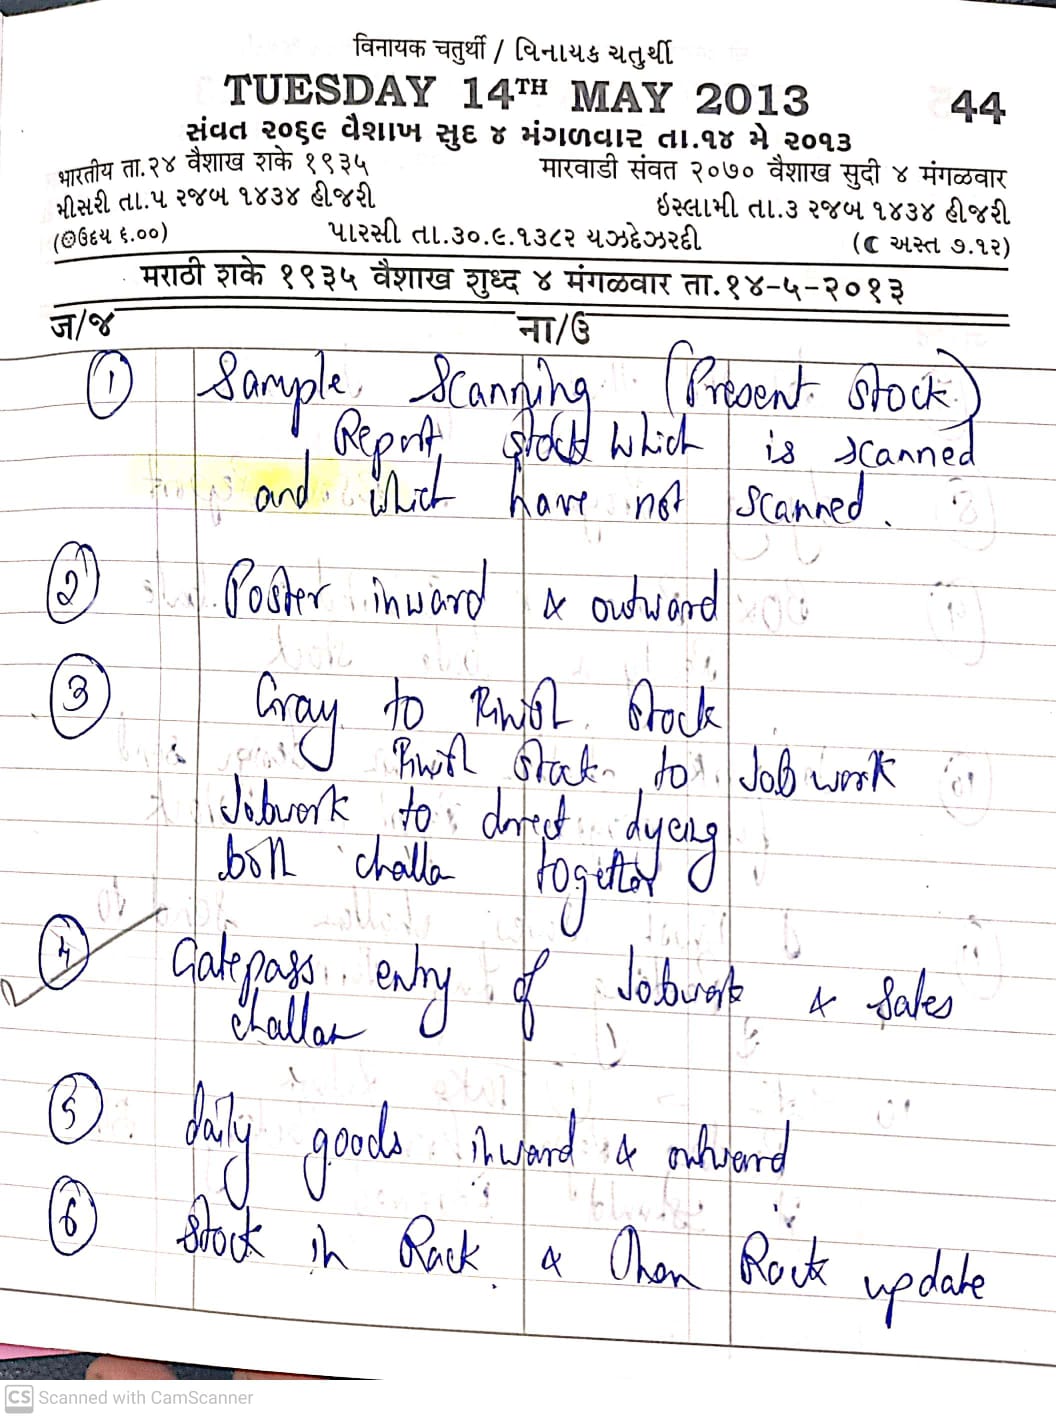 विनायक चतुर्थी / વિનાયક ચતુર્થી
TUESDAY 14TH MAY 2013 44
સંવત ૨૦૬૯ વૈશાખ સુદ ૪ મંગળવાર તા.૧૪ મે ૨૦૧૩
भारतीय ता.२४ वैशाख शके १९३५ मारवाडी संवत २०७० वैशाख सुदी ४ मंगळवार
મીસરી તા.૫ રજબ ૧૪૩૪ હીજરી ઇસ્લામી તા.૩ રજબ ૧૪૩૪ હીજરી
(ઉદય ૬.૦૦) પારસી તા.૩૦.૯.૧૩૮૨ યઝદેઝરદી (અસ્ત ૭.૧૨)
मराठी शके १९३५ वैशाख शुध्द ४ मंगळवार ता.१४-५-२०१३
ज/જ ना/ઉ
1 Sample Scanning (Present Stock)
Report, stock which is scanned
and which have not scanned.
2 Poster inward & outward
3 Gray to Stock
Stock to Job work
Jobwork to direct dyeing
both challa together
4 Gatepass entry of Jobwork & Sales
challan
5 daily goods inward & outward
6 Stock in Rack & Rack update